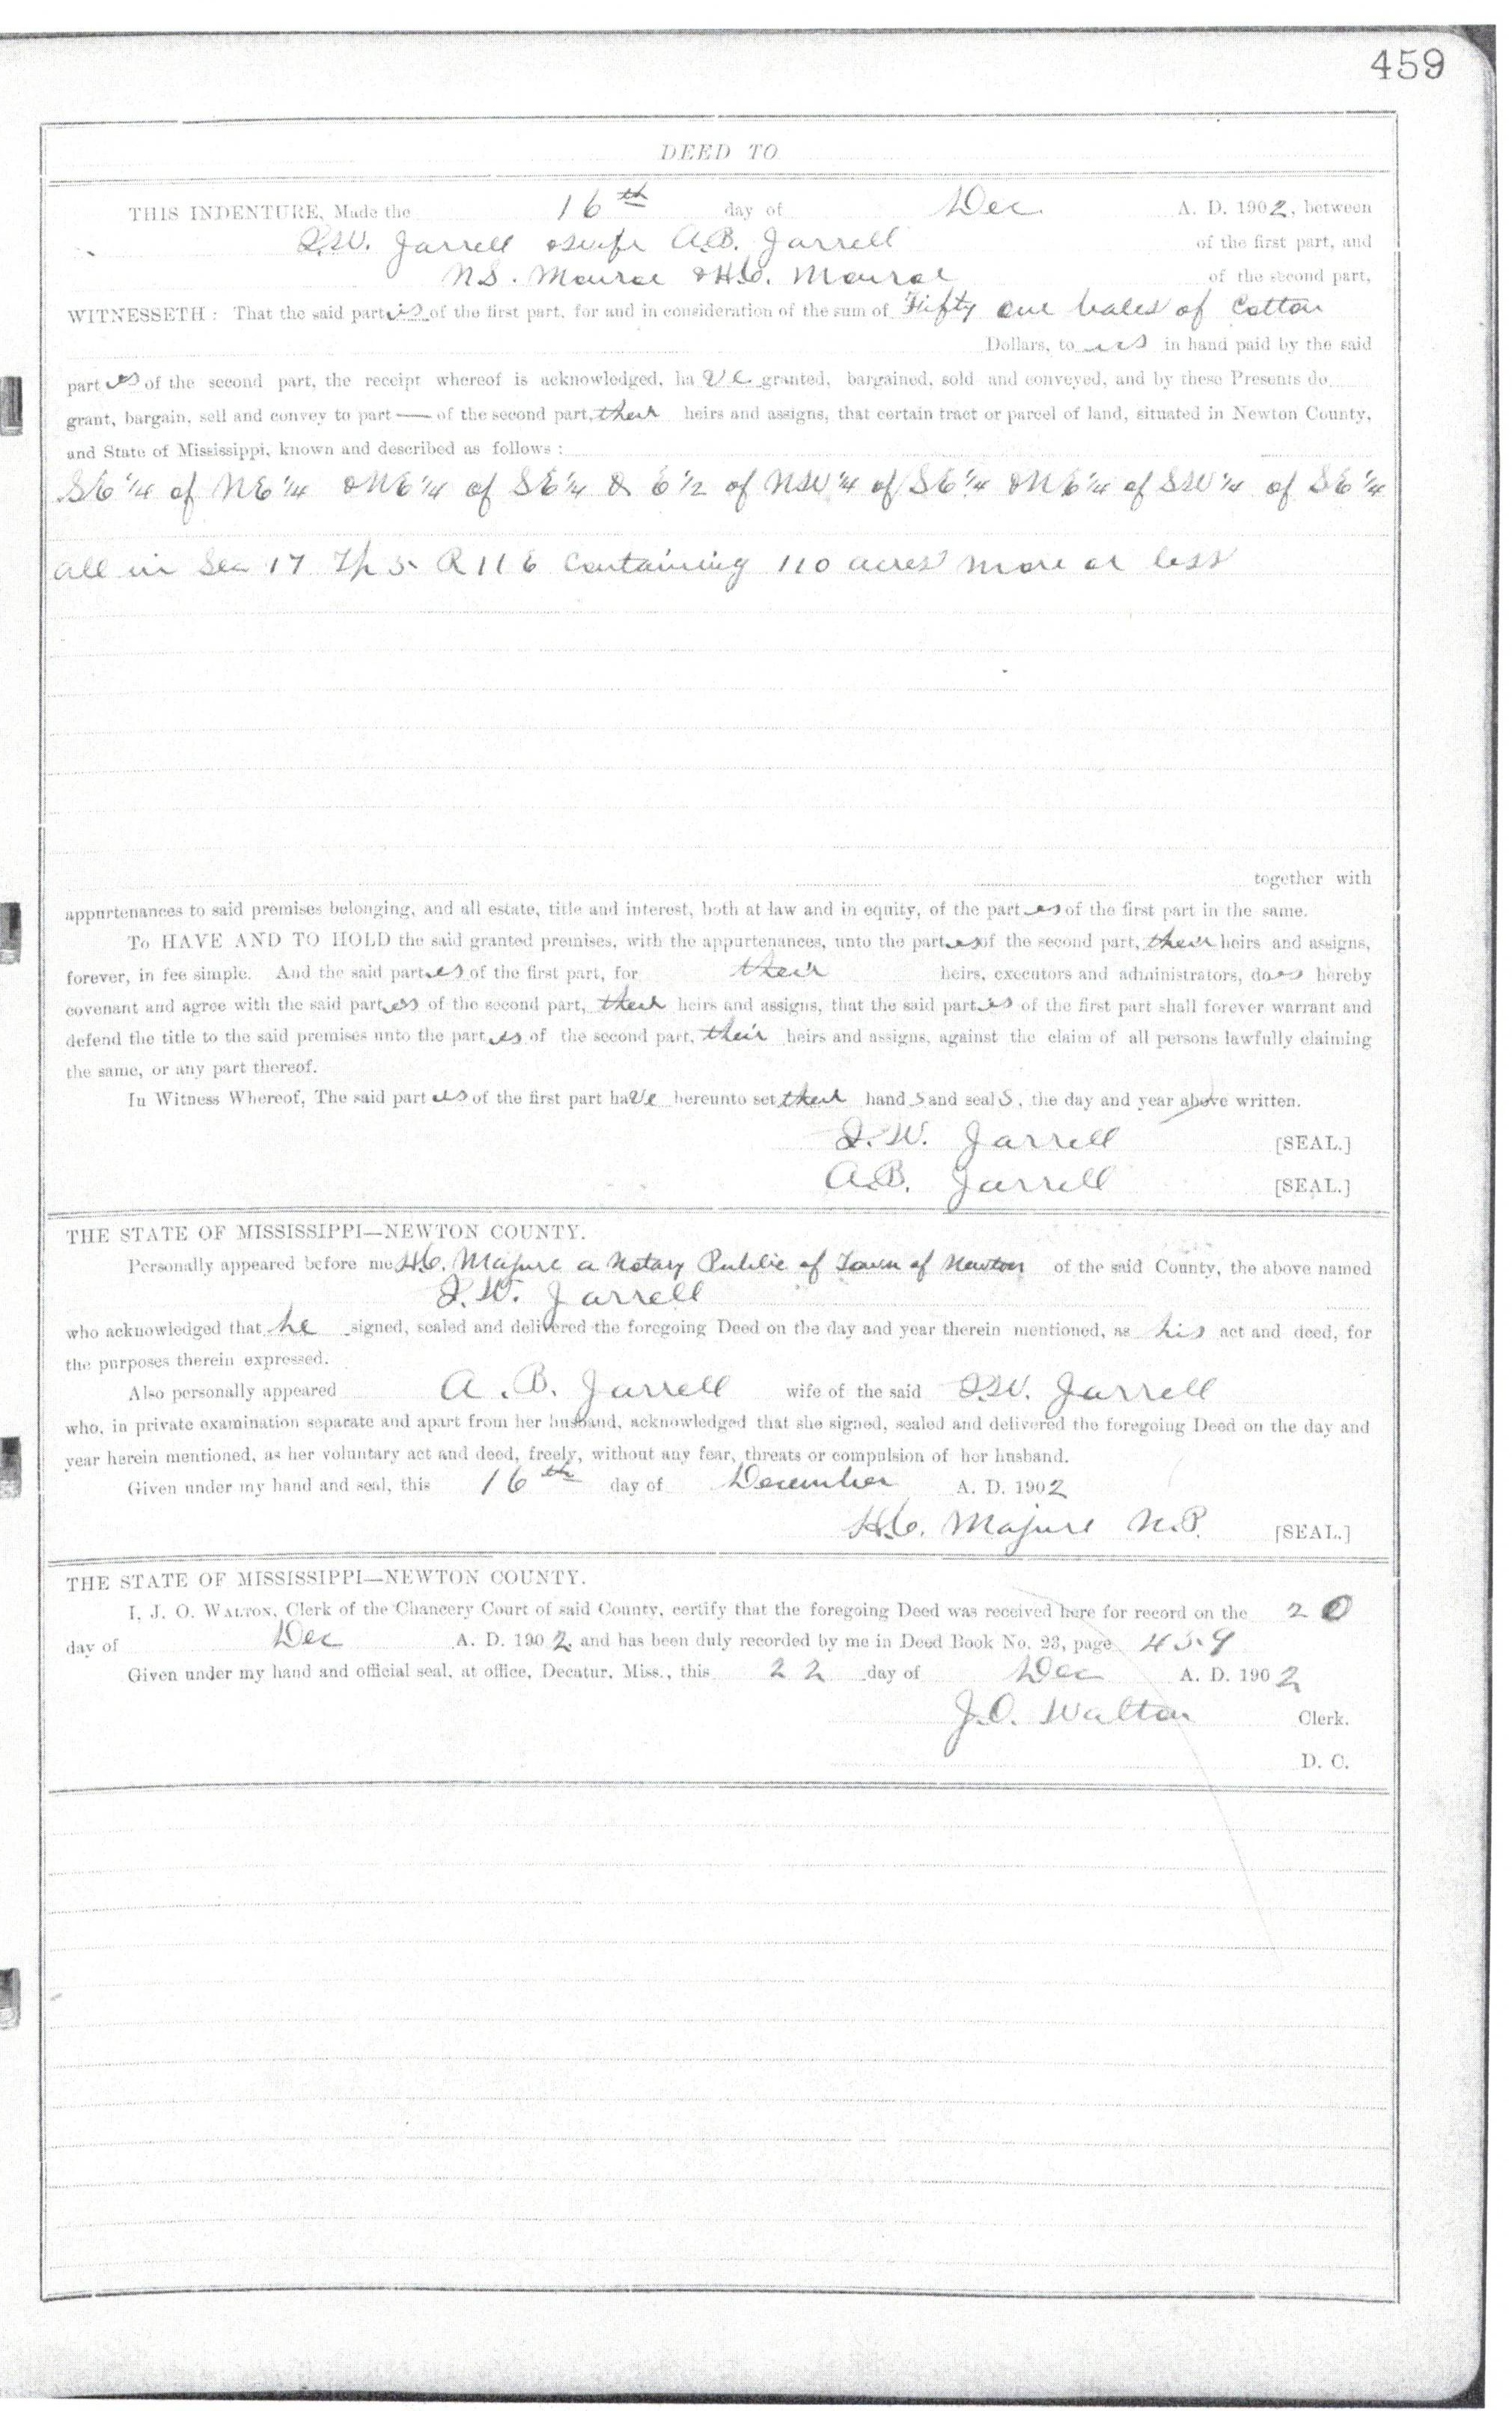 459
DEED TO
THIS INDENTURE, Made the 16th day of Dec. A. D. 1902, between
W. Jarrell & wife A.B. Jarrell of the first part, and
N.S. Monroe & H.C. Monroe of the second part,
WITNESSETH: That the said parties of the first part, for and in consideration of the sum of Fifty one bales of Cotton
Dollars, to us in hand paid by the said
part es of the second part, the receipt whereof is acknowledged, ha ve granted, bargained, sold and conveyed, and by these Presents do
grant, bargain, sell and convey to part — of the second part, their heirs and assigns, that certain tract or parcel of land, situated in Newton County,
and State of Mississippi, known and described as follows:
SE 1/4 of NE 1/4 & NE 1/4 of SE 1/4 & E 1/2 of NW 1/4 of SE 1/4 & NE 1/4 of SW 1/4 of SE 1/4
all in Sec 17 Tp 5 R 11 E Containing 110 acres more or less
together with
appurtenances to said premises belonging, and all estate, title and interest, both at law and in equity, of the part es of the first part in the same.
To HAVE AND TO HOLD the said granted premises, with the appurtenances, unto the part es of the second part, their heirs and assigns,
forever, in fee simple. And the said part es of the first part, for their heirs, executors and administrators, does hereby
covenant and agree with the said part es of the second part, their heirs and assigns, that the said parties of the first part shall forever warrant and
defend the title to the said premises unto the part es of the second part, their heirs and assigns, against the claim of all persons lawfully claiming
the same, or any part thereof.
In Witness Whereof, The said part es of the first part have hereunto set their hand s and seal S, the day and year above written.
W. Jarrell [SEAL.]
A.B. Jarrell [SEAL.]
THE STATE OF MISSISSIPPI—NEWTON COUNTY.
Personally appeared before me H.C. Majure a Notary Public of Town of Newton of the said County, the above named
W. Jarrell
who acknowledged that he signed, sealed and delivered the foregoing Deed on the day and year therein mentioned, as his act and deed, for
the purposes therein expressed.
Also personally appeared A.B. Jarrell wife of the said W. Jarrell
who, in private examination separate and apart from her husband, acknowledged that she signed, sealed and delivered the foregoing Deed on the day and
year herein mentioned, as her voluntary act and deed, freely, without any fear, threats or compulsion of her husband.
Given under my hand and seal, this 16th day of December A. D. 1902
H.C. Majure N.P. [SEAL.]
THE STATE OF MISSISSIPPI—NEWTON COUNTY.
I, J. O. WALTON, Clerk of the Chancery Court of said County, certify that the foregoing Deed was received here for record on the 20
day of Dec A. D. 1902, and has been duly recorded by me in Deed Book No. 23, page 459
Given under my hand and official seal, at office, Decatur, Miss., this 22 day of Dec A. D. 1902
J.O. Walton Clerk.
D. C.